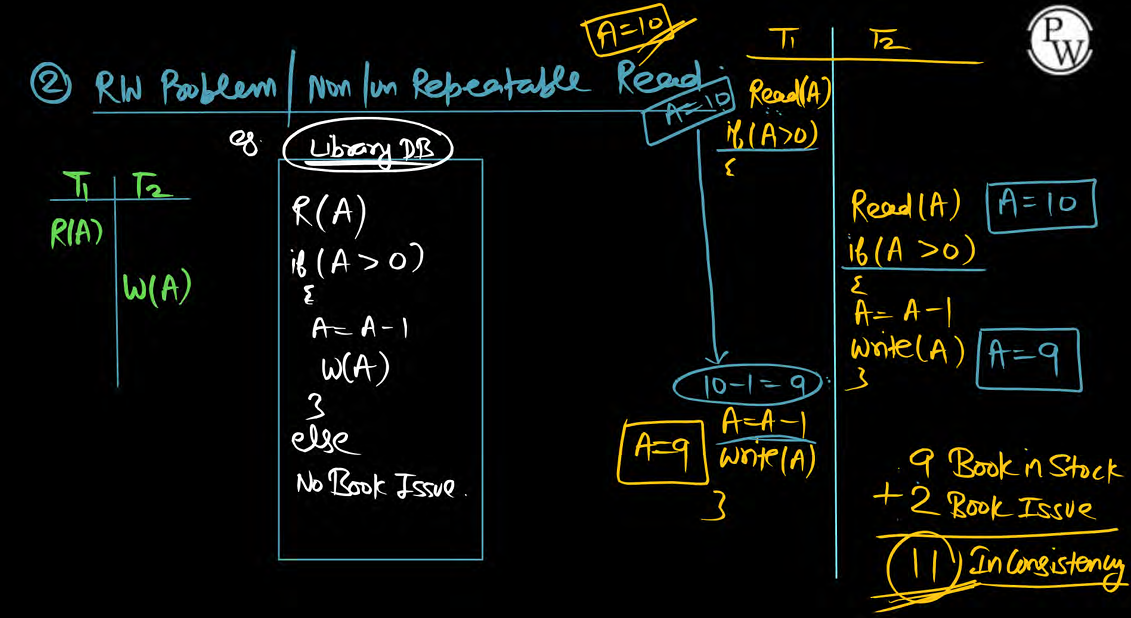 ② RW Problem / Non/un Repeatable Read:
eg. Library DB
T1 | T2
R(A)
W(A)
R(A)
if (A > 0)
{
A = A - 1
W(A)
}
else
No Book Issue.
A=10
T1 | T2
A=10
Read(A)
if (A>0)
{
Read(A) A=10
if (A >0)
{
A = A-1
Write(A) A=9
}
10-1=9
A=A-1
A=9 Write(A)
}
9 Book in Stock
+ 2 Book Issue
11 InConsistency
PW